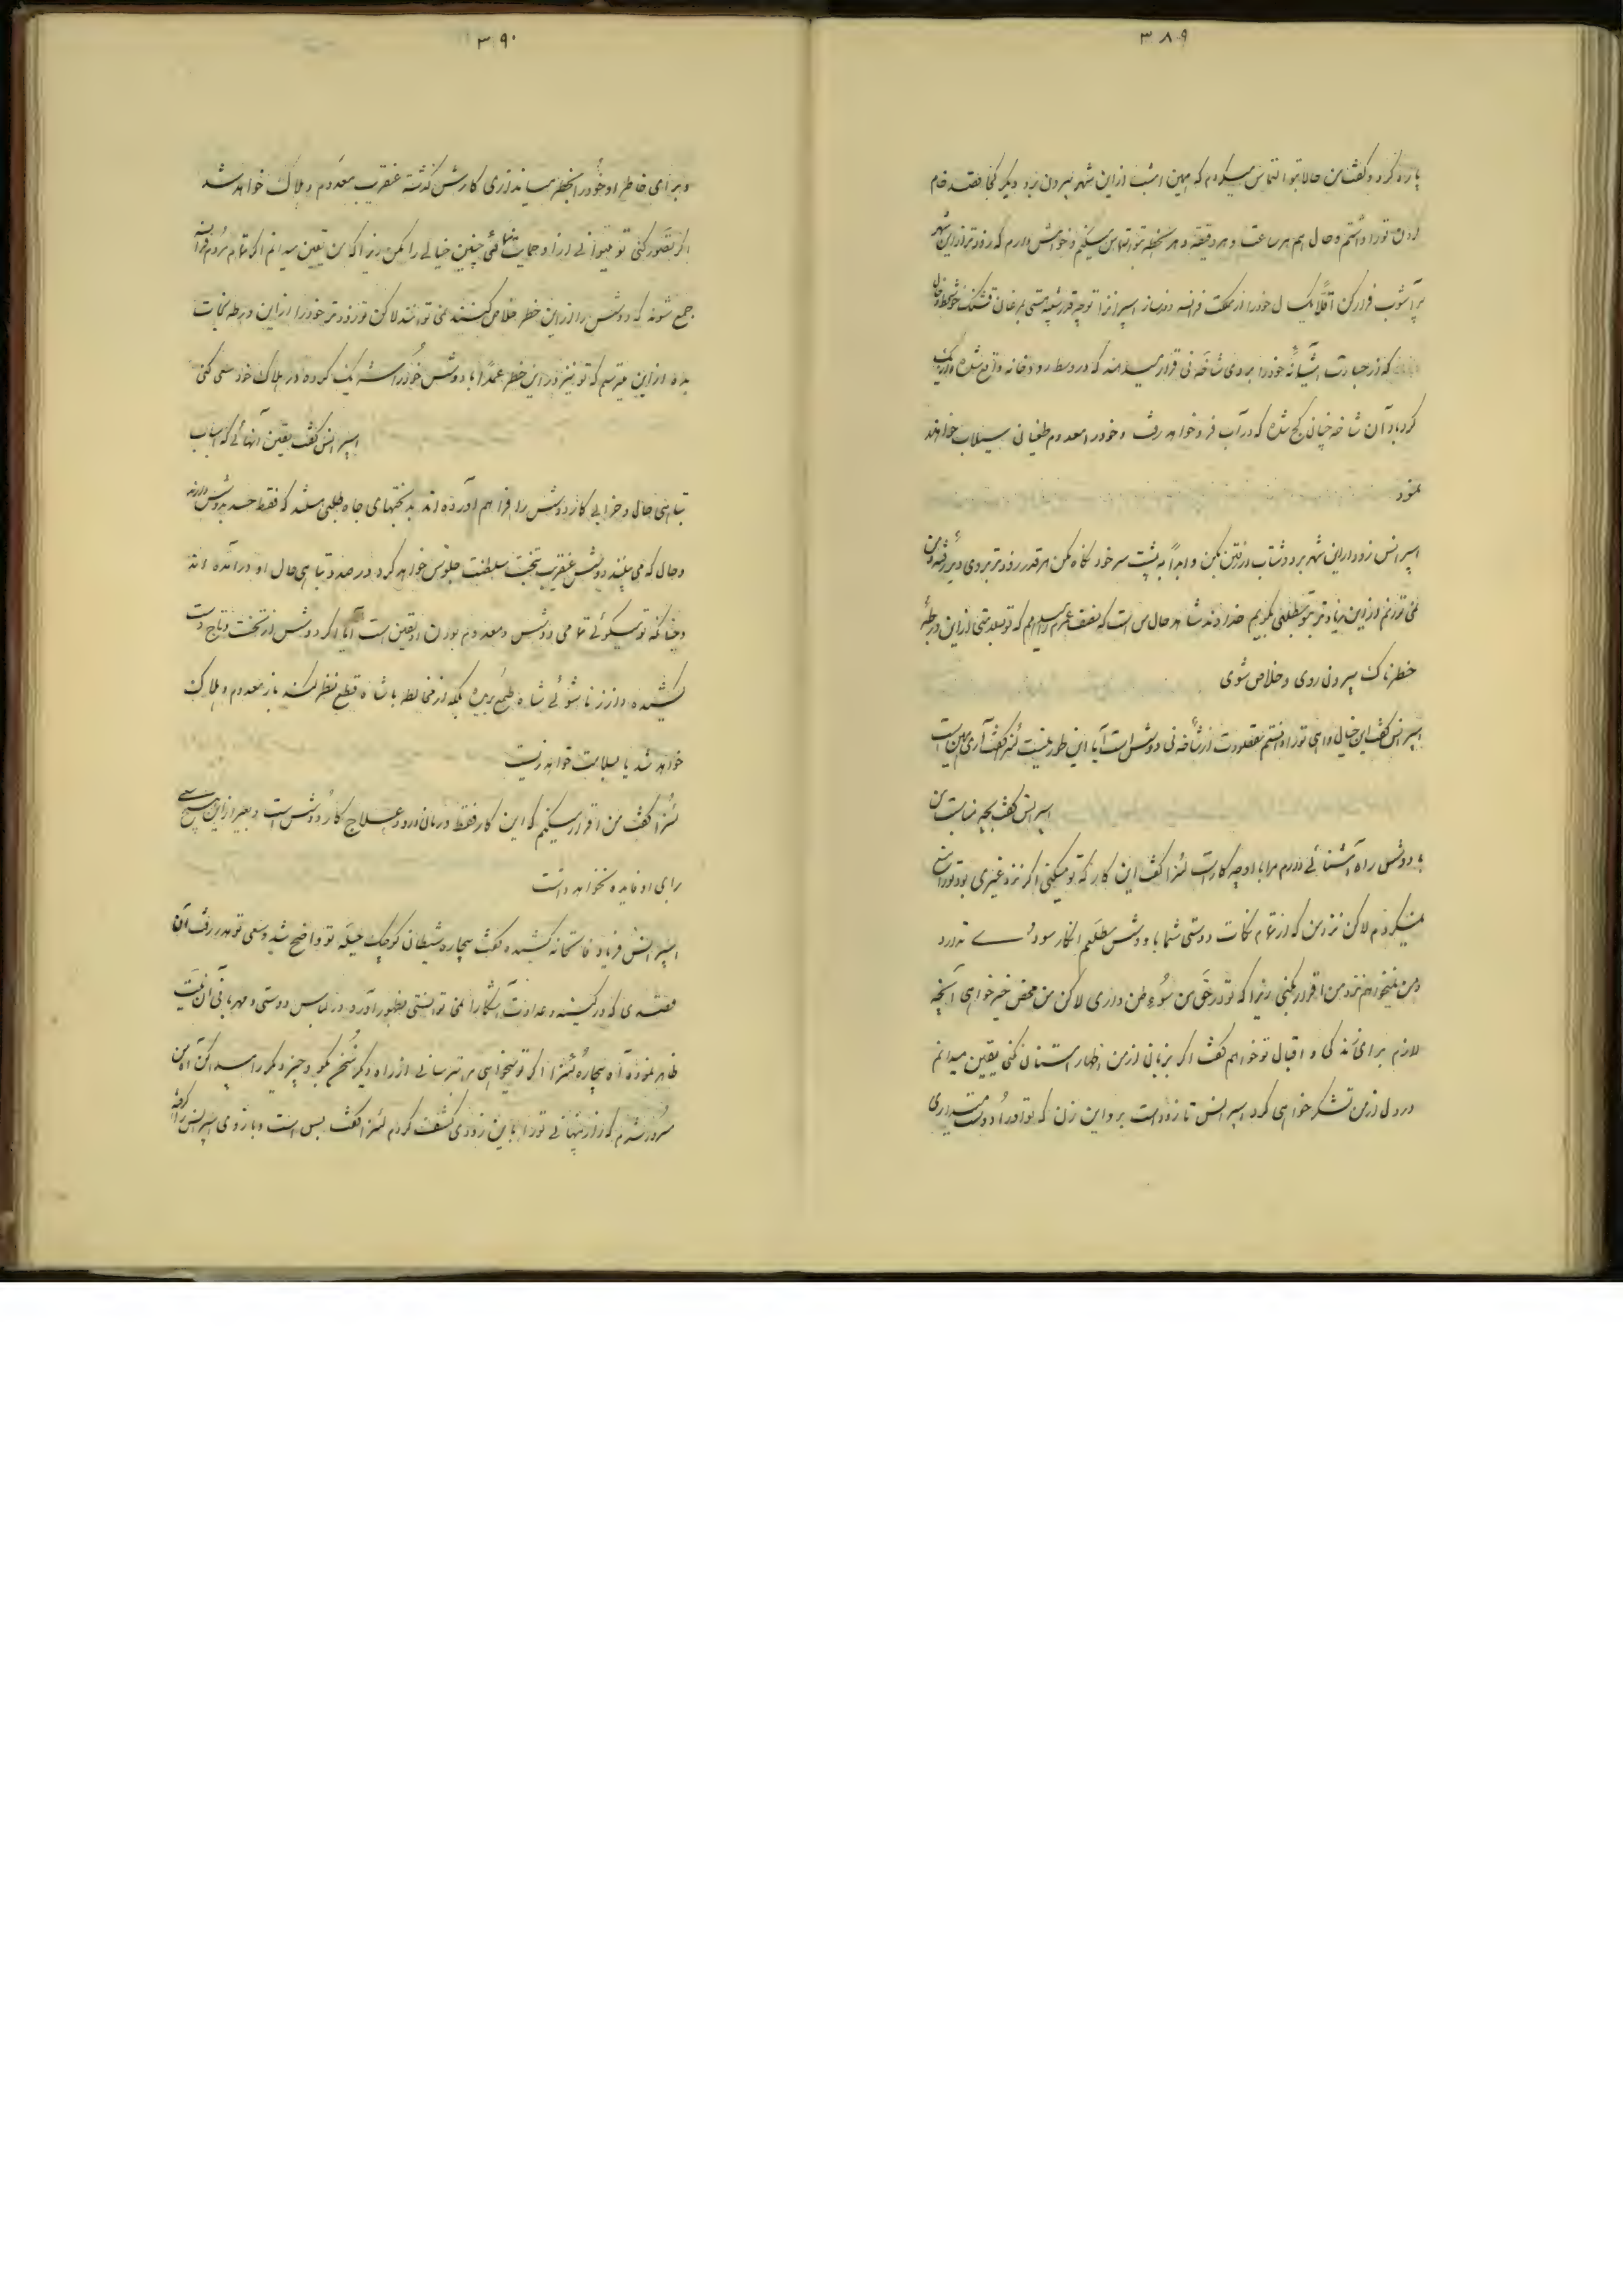 ۳۸۹
پاره کرد و گفت من حالا بتو التماس میکردم که همین امشب ازاین شهر بیرون برو دیگر کجا قصد خام
کردن تو را داشتم و حال هم هر ساعت و هر دقیقه و هر لحظه بتو التماس میکنم و خواهش دارم که زودتر ازاین شهر
پر آشوب فرار کن اقلاً یک سال خود را از مملکت فرانسه دور ساز اسپرانزا تو چه قدر شبیه هستی بمرغان قشنگ خوش خط و خال
که از جسارت آشیانهٔ خود را بروی شاخهٔ نی قرار میدهند که در وسط رودخانه واقع شده و از یک
گردباد آن شاخه چنان کج شده که در آب فرو خواهد رفت و خود را معدوم طغیانی سیلاب خواهند
نمود
اسپرانس زود از این شهر برو و شتاب در رفتن بکن و ابداً به پشت سر خود نگاه مکن هر قدر زودتر بروی دیر رفته و من
نمی توانم از این زیادتر بتو مطلبی بگویم خداوند شاهد حال من است که نصف عمرم را میدهم که تو بسلامتی از این ورطهٔ
خطرناک بیرون روی و خلاص شوی
اسپرانس گفت این خیال واهی تو را دانستم مقصودت از شاخه نی دوشس است آیا این طور نیست لئنرا گفت آری همین است
اسپرانس گفت بچه مناسبت من
با دوشس راه آشنائی دارم مرا با او چه کار است لئنرا گفت این کار که تو میکنی اگر نزد غیری بود تو را منع
نمیکردم لاکن نزد من که از تمام نکات دوستی شما با دوشس مطلعم انکار سودی ندارد
و من نمیخواهم نزد من اقرار بکنی زیرا که تو در حق من سوء ظن داری لاکن من محض خیرخواهی آنچه
لازم برای زندگی و اقبال تو خواهم گفت اگر بزبان از من اظهار امتنان نکنی یقین میدانم
در دل از من تشکر خواهی کرد اسپرانس تا زود است برو این زن که تو او را دوست میداری
۳۹۰
و برای خاطر او خود را بخطر میاندازی کارش گذشته عنقریب معدوم و هلاک خواهد شد
اگر تصور کنی تو میتوانی از او حمایت نمائی چنین خیالی را مکن زیرا که من یقین میدانم اگر تمام مردم فرانسه
جمع شوند که دوشس را از این خطر خلاص کنند نمی توانند لاکن تو زودتر خود را از این ورطه نجات
بده از این میترسم که تو نیز در این خطر عمداً با دوشس خود را شریک کرده در هلاک خود سعی کنی
اسپرانس گفت یقین آنهائی که اسباب
تباهی حال و خرابی کار دوشس را فراهم آورده اند بدبختهای جاه طلبی هستند که فقط حسد بدوشس دارند
و حال که می بینند دوشس عنقریب بتخت سلطنت جلوس خواهد کرد در صدد تباهی حال او درآمده اند
و چنانکه تو میگوئی تمامی دوشس و معدوم بودن او یقین است آیا اگر دوشس از تخت و تاج دست
کشیده و از زناشوئی شاه طمع بریده بلکه از مخالطه با شاه قطع نظر کند باز معدوم و هلاک
خواهد شد یا بسلامت خواهد زیست
لئنرا گفت من اقرار میکنم که این کار فقط درمان درد و علاج کار دوشس است و بغیر از این هیچ
رای او فایده نخواهد داشت
اسپرانس فریاد فاتحانه کشیده گفت بیچاره شیطان کوچک حیله تو واضح شد و سعی تو هدر رفت آن
مقصدی که در کینه و عداوت آشکارا نمی توانستی بظهور آورد در لباس دوستی و مهربانی آن نیت
ظاهر نموده آه بیچاره لئنرا اگر تو میخواهی مرا بترسانی از راه دیگر سخن بگو و چیز دیگر را وسیله کن آه من
مسرور شدم که راز پنهانی تو را باین زودی کشف کردم لئنرا گفت بس است و بازوی اسپرانس را گرفته